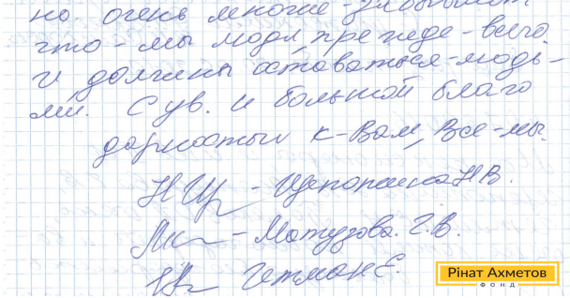 но очень многие - забывают
что - мы люди прежде - всего
и должны оставаться - людь-
ми. С ув. и большой благо
дарностью к - Вам, Все - мы.
Н.В.
Матузова. Г.В.
Гетман Е.
Рінат Ахметов
ФОНД